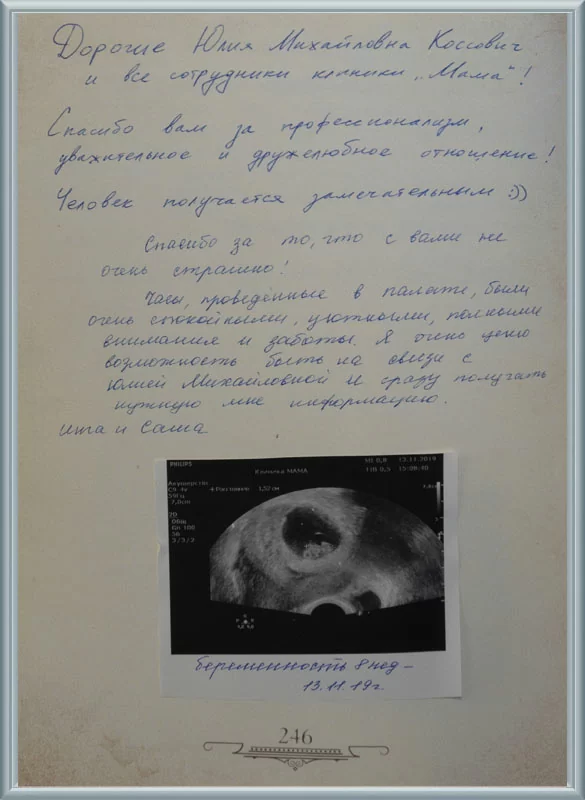 Дорогие Юлия Михайловна Коссович
и все сотрудники клиники „Мама"!
Спасибо вам за профессионализм,
уважительное и дружелюбное отношение!
Человек получается замечательным :))
Спасибо за то, что с вами не
очень страшно!
Часы, проведённые в палате, были
очень спокойными, уютными, полными
внимания и заботы. Я очень ценю
возможность быть на связи с
Юлией Михайловной и сразу получать
нужную мне информацию.
и Саша
PHILIPS
MI 0,8 13.11.2019
Клиника МАМА
TIB 0,5 15:08:40
Акушерство
C9-4v
4 Расстояние 1,52 см
55Гц
7,0cm
2D
Общ
Gn 100
56
3/3/2
беременность 8 нед –
13.11.19г.
246